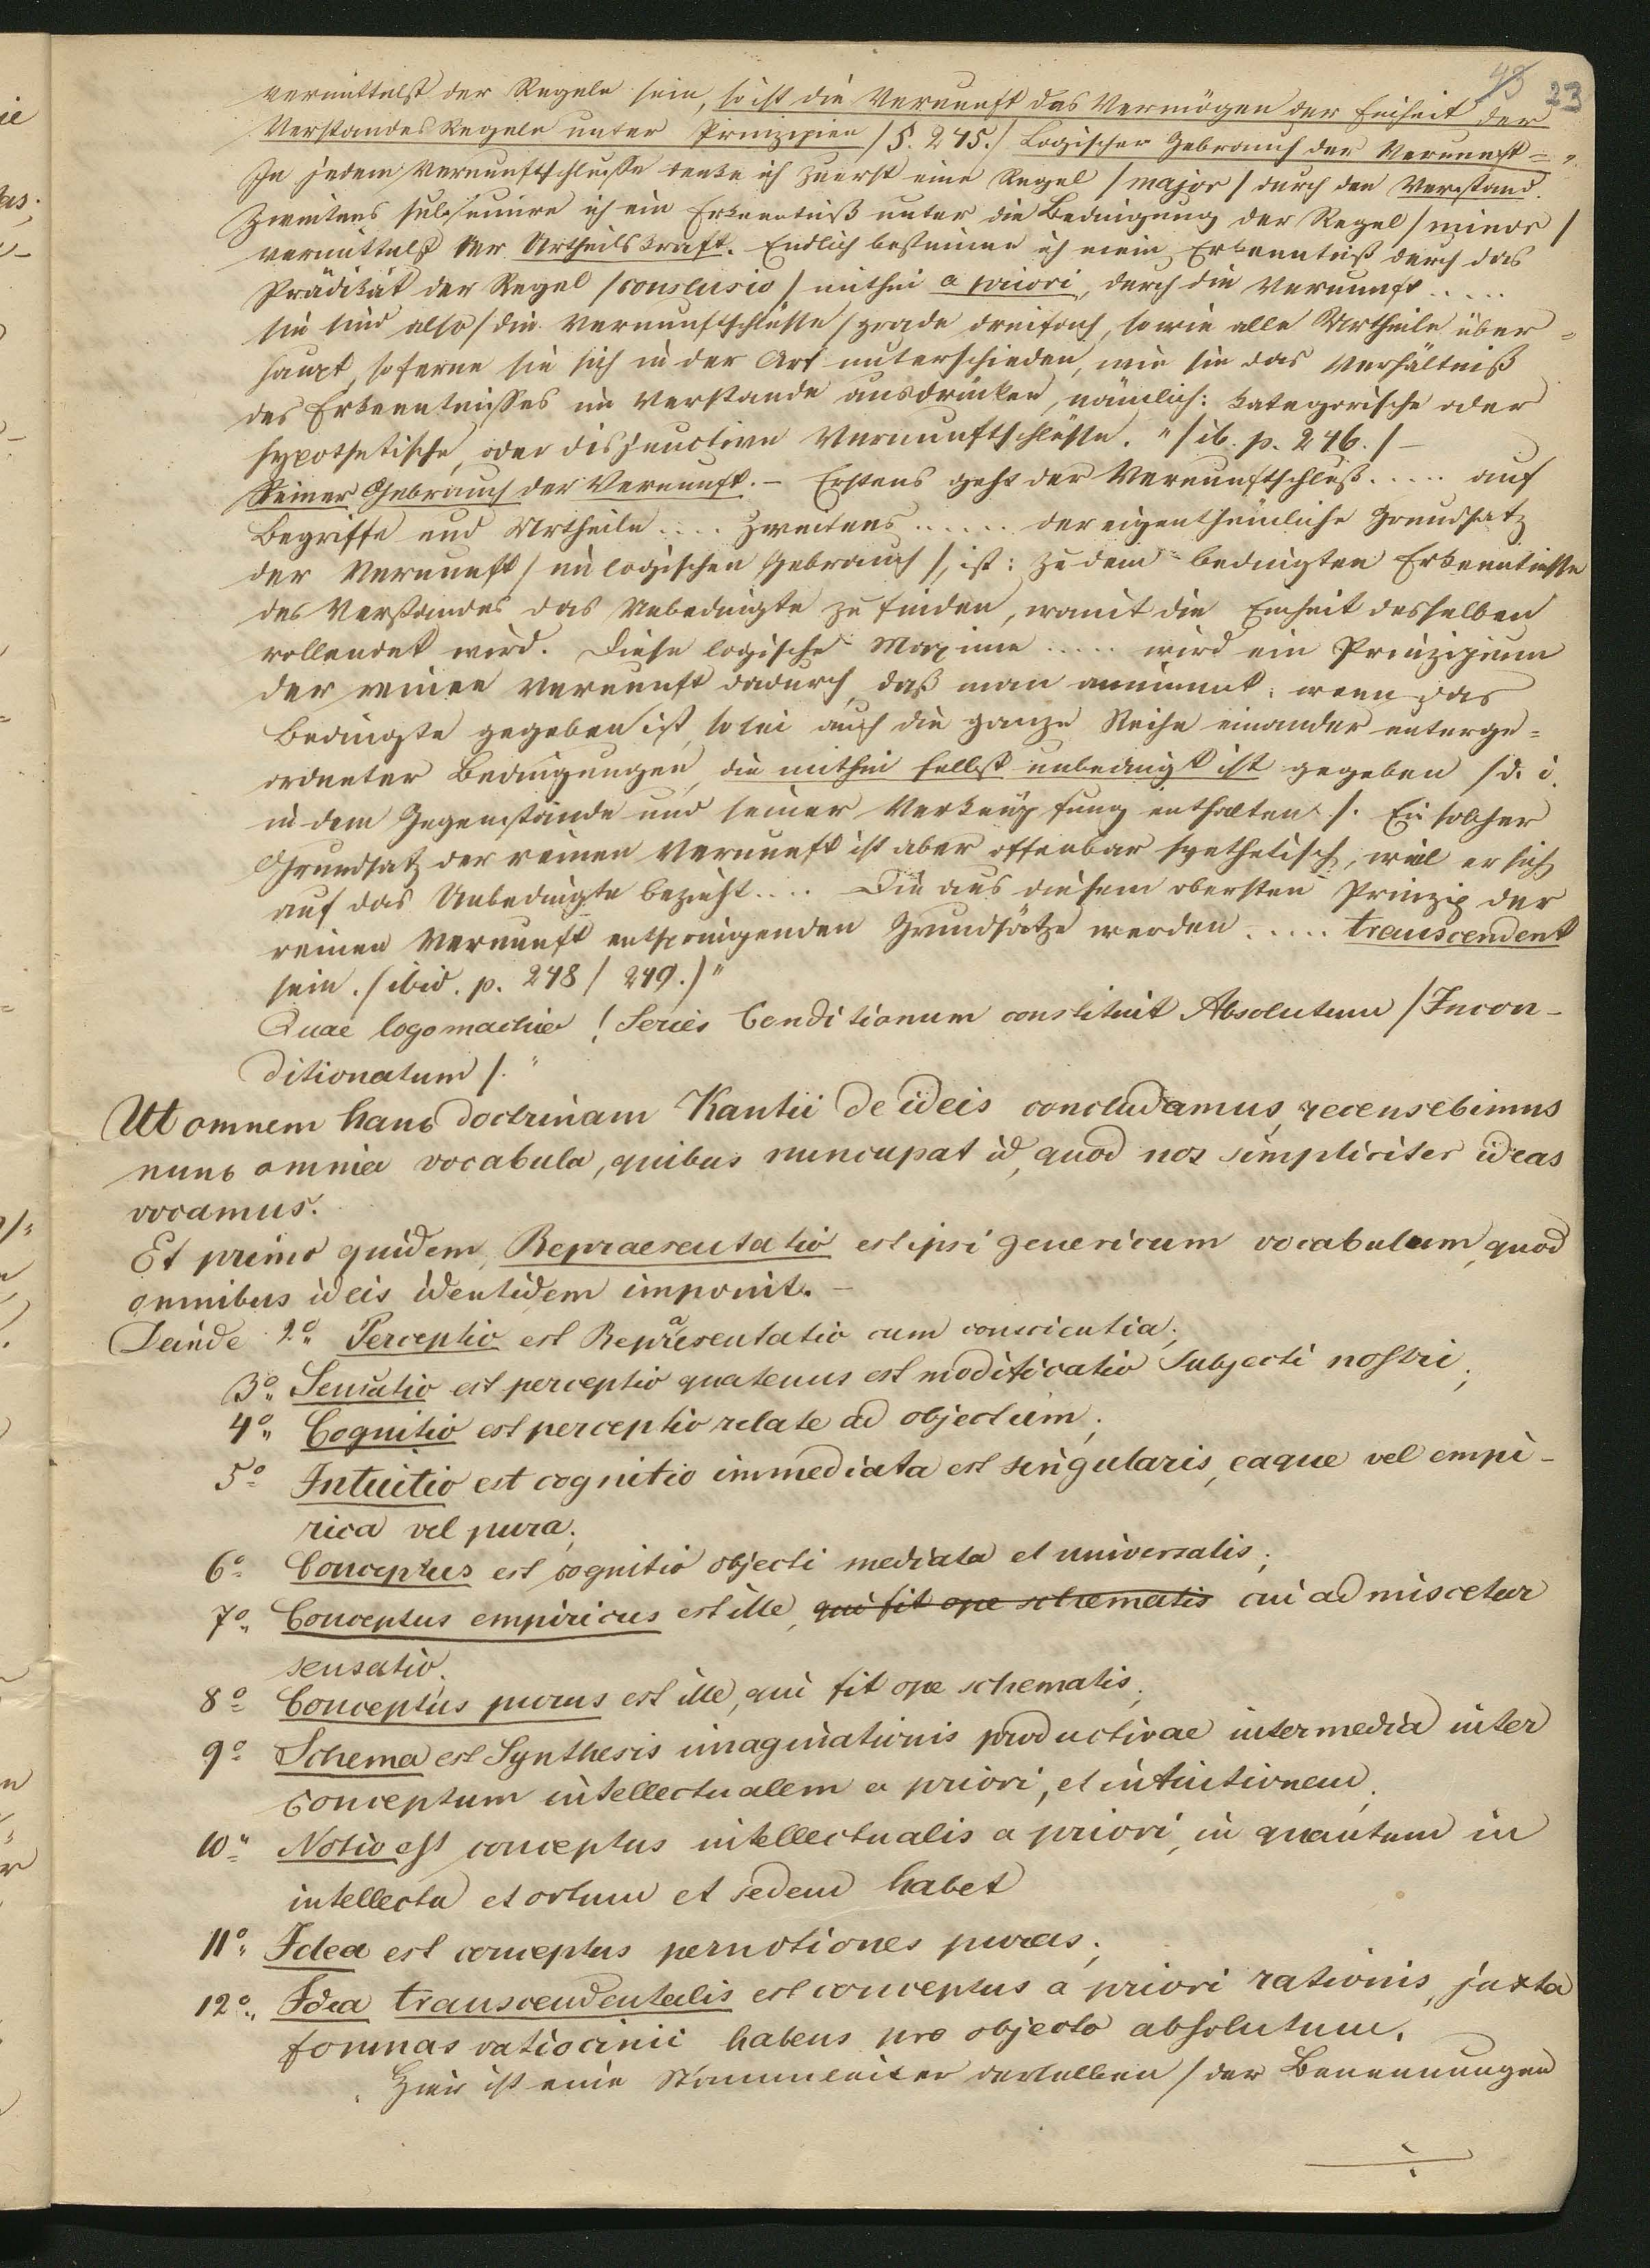 43 23
vermittelst der Regeln sein, so ist die Vernunft das Vermögen der Einheit der
Verstandes Regeln unter Prinzipien /§. 245./ Logischer Gebrauch der Vernunft =
In jedem Vernunftschlusse denke ich zuerst eine Regel /major/ durch den Verstand.
Zweitens subsumire ich ein Erkenntniß unter die Bedingung der Regel /minor/
vermittelst der Urtheilskraft. Endlich bestimme ich mein Erkenntniß durch das
Prädikat der Regel /conclusio/ mithin a priori, durch die Vernunft .....
sie sind also /die Vernunftschlüsse/ grade dreifach, so wie alle Urtheile über=
haupt, soferne sie sich in der Art unterschieden, wie sie das Verhältniß
des Erkenntnisses im Verstande ausdrücken, nämlich: kategorische oder
hypothetische, oder disjunctive Vernunftschlüsse." /ib. p. 246./ –
Reiner Gebrauch der Vernunft. – Erstens geht der Vernunftschluß ..... auf
Begriffe und Urtheile .... Zweitens ...... der eigenthümliche Grundsatz
der Vernunft /im logischen Gebrauch/, ist: zu dem bedingten Erkenntnisse
des Verstandes das Unbedingte zu finden, womit die Einheit desselben
vollendet wird. Diese logische Maxime ..... wird ein Prinzipium
der reinen Vernunft dadurch, daß man annimmt: wenn das
Bedingte gegeben ist, so sei auch die ganze Reihe einander unterge=
ordneter Bedingungen, die mithin selbst unbedingt ist gegeben /d. i.
in dem Gegenstande und seiner Verknüpfung enthalten/. Ein solcher
Grundsatz der reinen Vernunft ist aber offenbar synthetisch, weil er sich
auf das Unbedingte bezieht .... Die aus diesem obersten Prinzip der
reinen Vernunft entspringenden Grundsätze werden ..... transcendent
sein. /ibid. p. 248/249./"
Quae logomachia! Series Conditionum constituit Absolutum /Incon-
ditionatum/."
Ut omnem hanc doctrinam Kantii de ideis concludamus, recensebimus
nunc omnia vocabula, quibus nuncupat id, quod nos simpliciter ideas
vocamus.
Et primo quidem, Repraesentatio est ipsi genericum vocabulum, quod
omnibus ideis identidem imponit. –
Deinde 2o Perceptio est Repraesentatio cum conscientia;
3o Sensatio est perceptio quatenus est modificatio Subjecti nostri;
4o Cognitio est perceptio relate ad objectum;
5o Intuitio est cognitio immediata est singularis, eaque vel empi-
rica vel pura;
6o Conceptus est cognitio objecti mediata et universalis;
7o Conceptus empiricus est ille, qui fit ope schematis cui admiscetur
sensatio.
8o Conceptus purus est ille, qui fit ope schematis;
9o Schema est Synthesis imaginationis productivae intermedia inter
conceptum intellectualem a priori, et intuitionem;
10o Notio est conceptus intellectualis a priori, in quantum in
intellectu et ortum et sedem habet
11o Idea est conceptus per notiones puras;
12o Idea transcendentalis est conceptus a priori rationis, juxta
formas ratiocinii habens pro objecto absolutum.
Hier ist eine Stammleiter derselben /der Benennungen